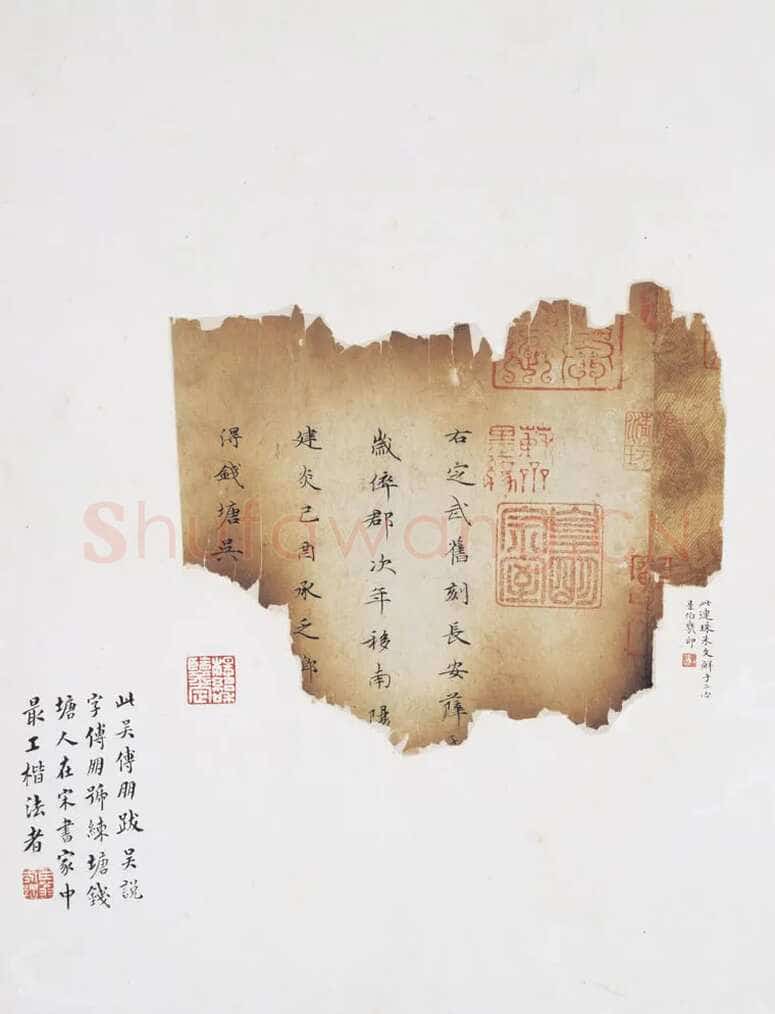 此連珠朱文鮮于
是伯幾印
蘇齋墨緣
右定武舊刻長安薛
歲倅郡次年移南陽
建炎己酉承乏郎
得錢塘吳
此吳傅朋跋吳說
字傅朋號練塘錢
塘人在宋書家中
最工楷法者
Shufawang.CN